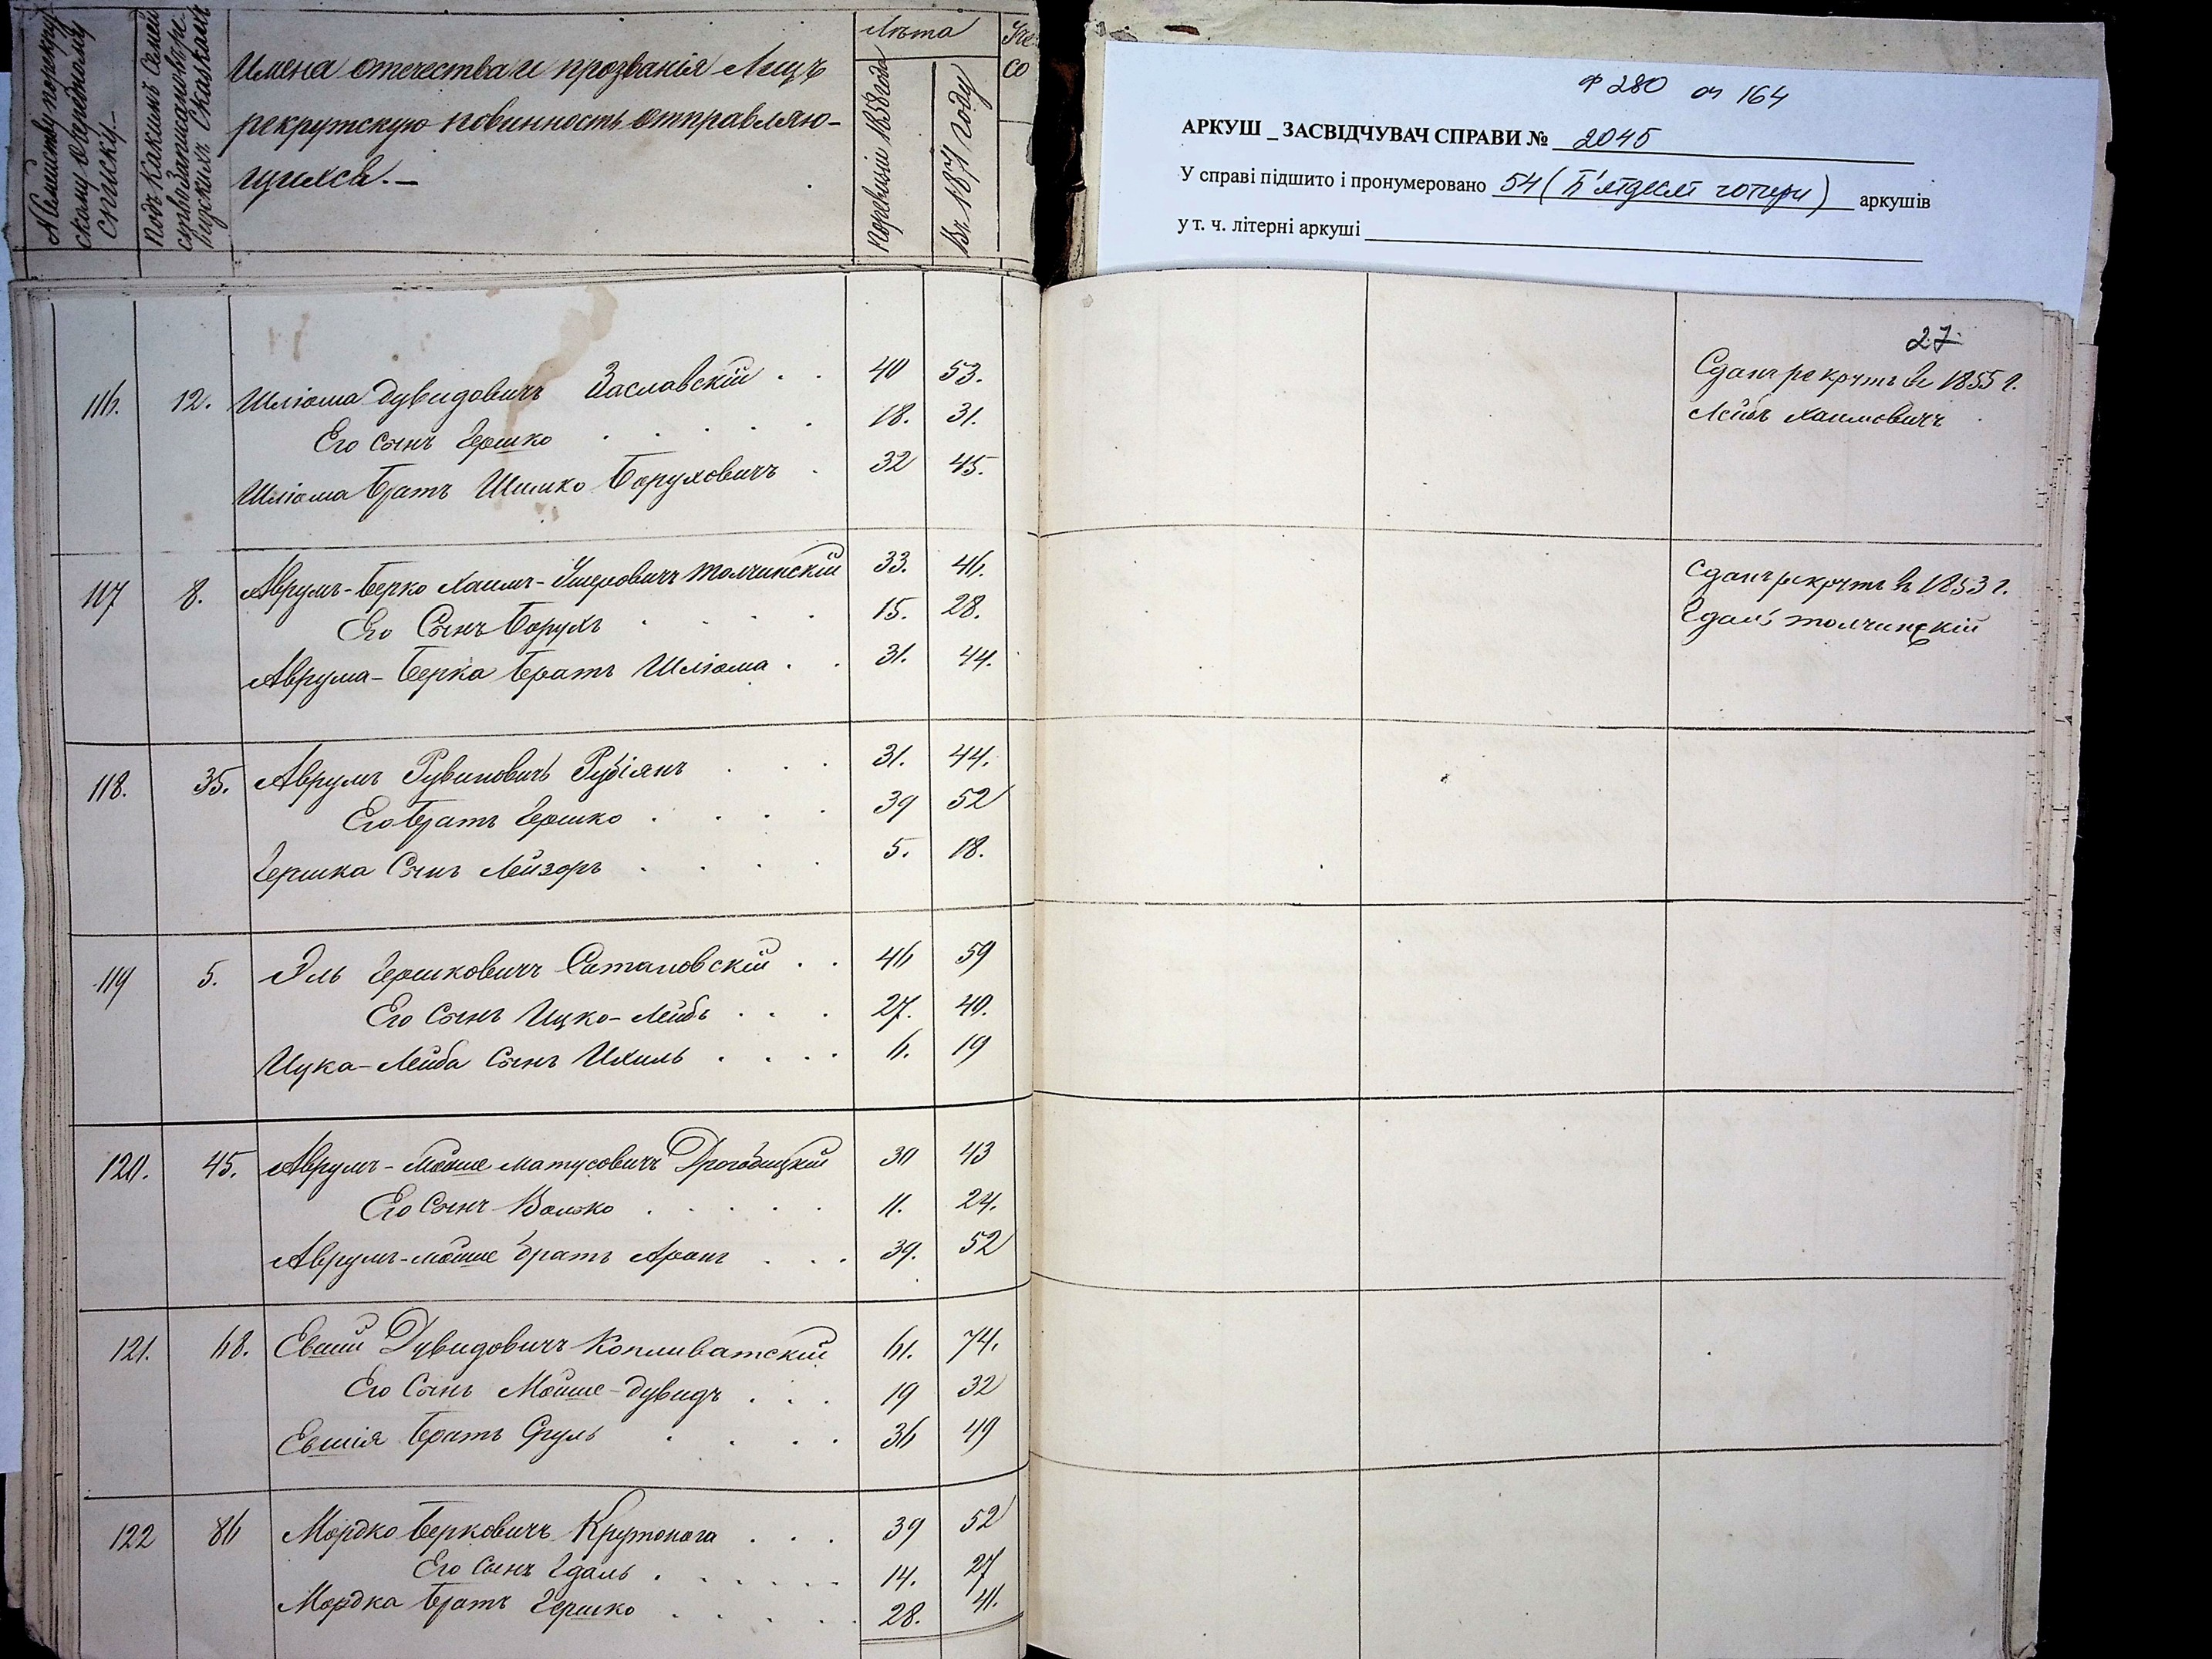 № Семейству порекрут
скому Очередному
Списку.
Подъ Какимъ Семей
Имена отечества и прозванія Лицъ
рекрутскую повинность отправляю-
щихся.
Лѣта
По ревизіи 1858 года
Въ 1871 году
ф 280 оп 164
АРКУШ _ ЗАСВІДЧУВАЧ СПРАВИ № 2045
У справі підшито і пронумеровано 54 (П'ятдесят чотири) аркушів
у т. ч. літерні аркуші
27
116. 12. Шліома Дувидовичъ Заславскій 40 53. Сданъ рекрутъ въ 1855 г.
Его Сынъ Гершко 18. 31. Лейбъ Хаимовичъ
Шліома Братъ Шимко Боруховичъ 32 45.
117 8. Аврумъ-Берко Хаимъ-Ушеровичъ Толчинскій 33. 46. Сданъ рекрутъ въ 1853 г.
Его Сынъ Борухъ 15. 28. Гдаль Толчинскій
Аврума-Берка Братъ Шліома 31. 44.
118. 35. Аврумъ Рувиновичъ Рубіянъ 31. 44.
Его Братъ Гершко 39 52
Гершка Сынъ Лейзоръ 5. 18.
119 5. Эль Гершковичъ Сатановскій 46 59
Его Сынъ Ицко-Лейбъ 27. 40.
Ицка-Лейба Сынъ Ихиль 6. 19
120. 45. Аврумъ-Мойше Матусовичъ Дрогобицкій 30 43
Его Сынъ Волько 11. 24.
Аврумъ-Мойше братъ Аронъ 39. 52
121. 68. Евшій Дувидовичъ Копливатскій 61. 74.
Его Сынъ Мойше-Дувидъ 19 32
Евшія Братъ Сруль 36 49
122 86 Мордко Берковичъ Крутонога 39 52
Его Сынъ Гдаль 14. 27
Мордка Братъ Гершко 28. 41.